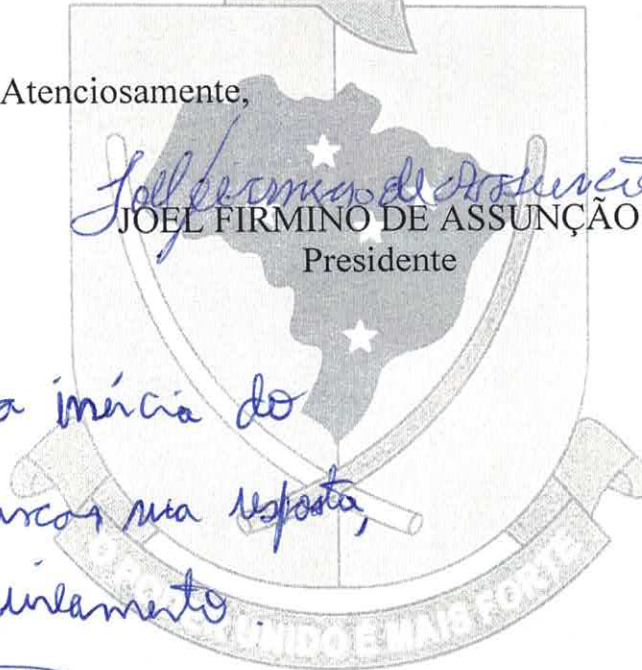 Atenciosamente,
Joel Firmino de Assunção
JOEL FIRMINO DE ASSUNÇÃO
Presidente
a inércia do
sua resposta,
O PODER UNIDO É MAIS FORTE